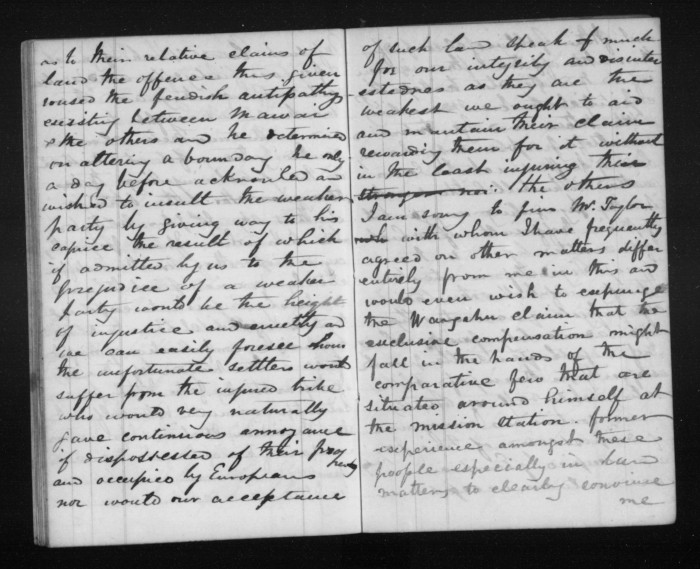 as to their relative claims of
land the offence thus given
roused the fendish antipathy
existing between Mawai
& the others and he determined
on altering a boundary he only
a day before acknowled and
wished to insult the weaker
party by giving way to his
caprice the result of which
if admitted by us to the
prejudice of a weaker
party would be the height
of injustice and cruelty and
we can easily foresee how
the unfortunate settlers would
suffer from the injured tribe
who would very naturally
gave continuous annoyance
if dispossessed of their property
and occupied by Europeans
nor would our acceptance
of such land speak & much
for our integrity and disinter
estedness as they are the
weakest we ought to aid
and maintain their claim
rewarding them for it without
in the least injuring their
stronger nei. the others
I am sorry to find Mr. Taylor
with whom I have frequently
agreed on other matters differ
entirely from me in this and
would even wish to expunge
the Wangaehu claim that the
exclusive compensation might
fall in the hands of the
comparative few that are
situated around himself at
the mission station. former
experience amongst these
people especially in land
matters to clearly convince
me